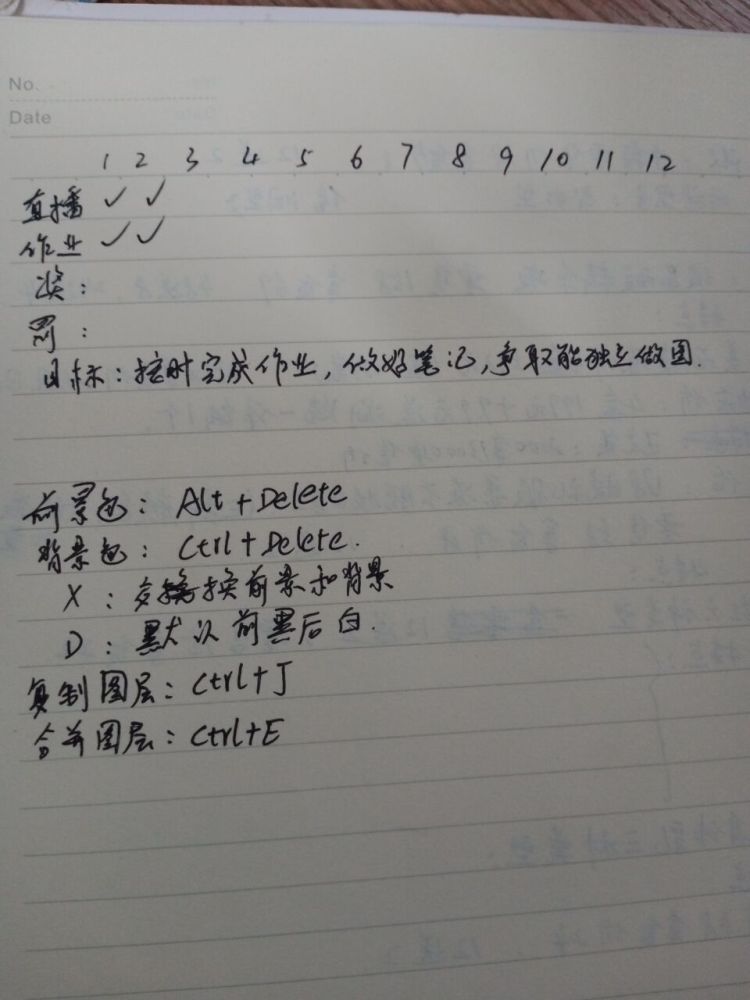 No.
Date
1 2 3 4 5 6 7 8 9 10 11 12
直播 ✓ ✓
作业 ✓ ✓
奖：
罚：
目标：按时完成作业，做好笔记，争取能独立做图.
前景色：Alt+Delete
背景色：Ctrl+Delete.
X：交换前景和背景
D：默认前黑后白.
复制图层：Ctrl+J
合并图层：Ctrl+E